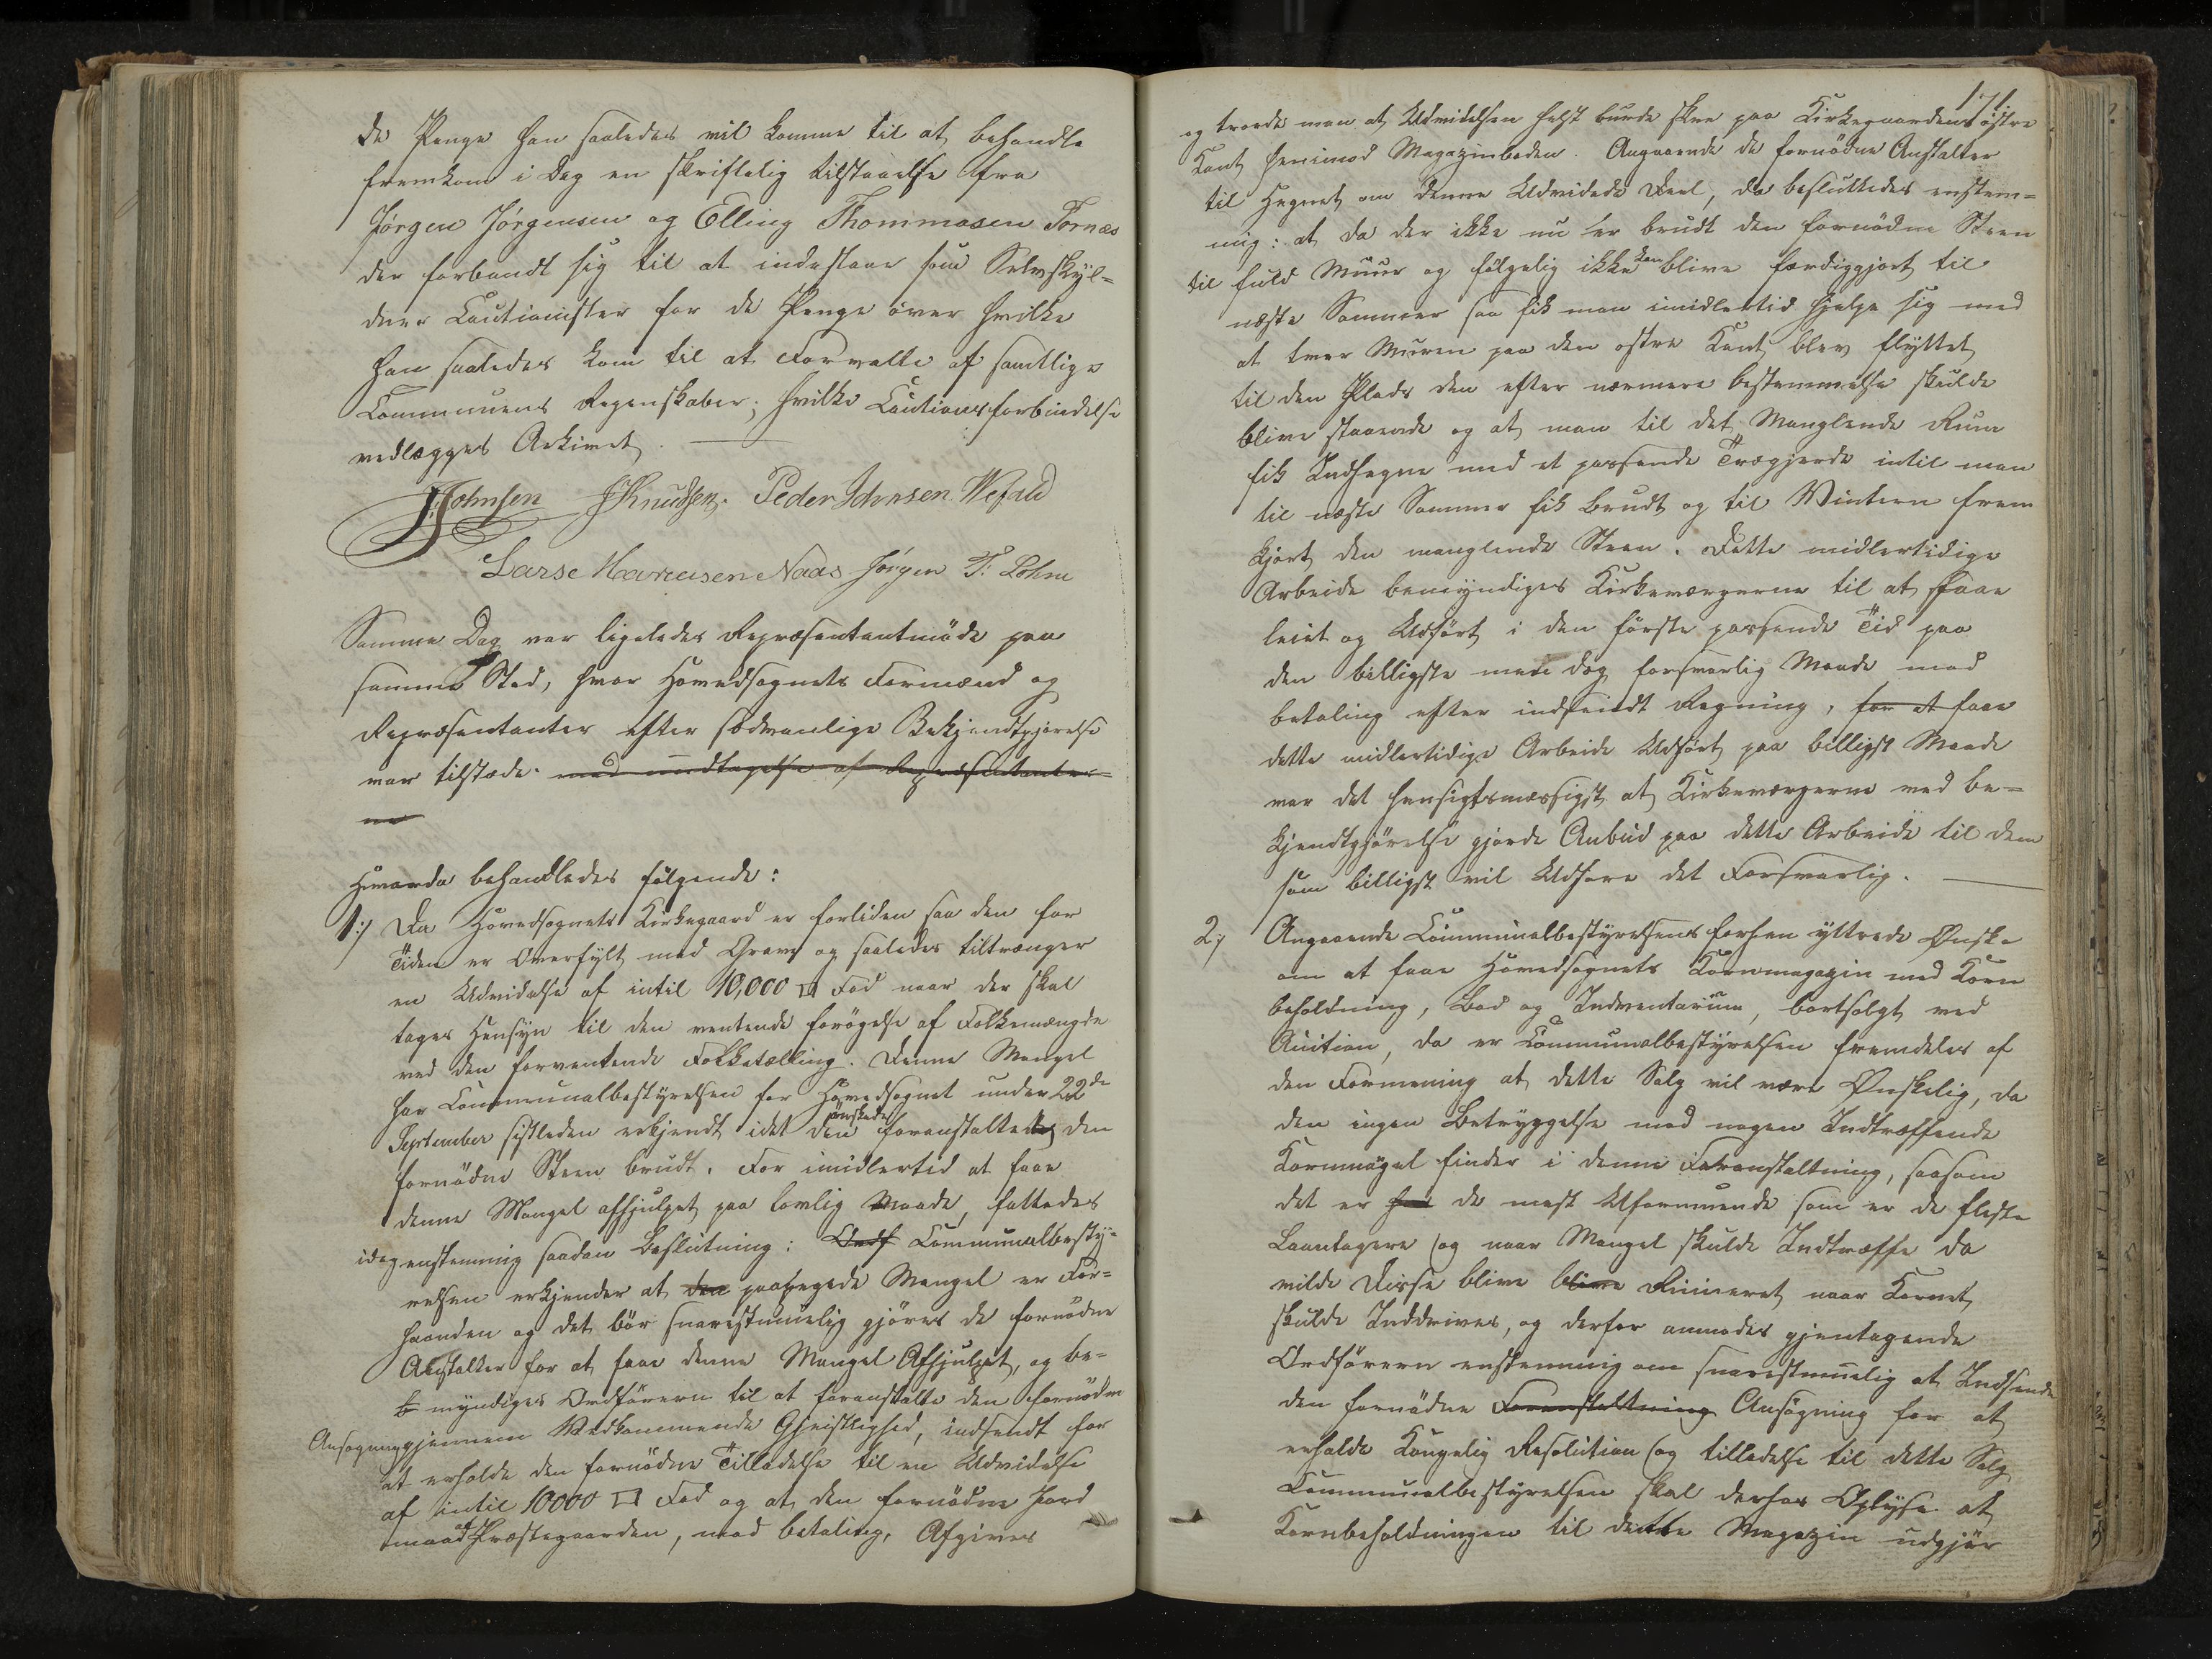 de Penge han saaledes vil komme til at behandle
fremkom i Dag en skriftelig tilstaaelse fra
Jørgen Jørgensen og Elling Thommasen Tornæs
der forbandt sig til at indestaae som Selvskyl=
dner Cautionister for de Penge över hvilke
han saaledes kom til at Forvalte af samtlige
Communens Regenskaber; hvilke Cautionsforbindelse
vedlægges Arkivet.
J. Johnsen JKnudsen. Peder Johnsen Wefald
Larse Halvorsen Naas Jörgen T: Lohne
Samme Dag var ligeledes Repræsentantmöde paa
samme Sted, hvor Hovedsognets Formænd og
Repræsentanter efter sædvanlige Bekjendtgjörelse
var tilstæde. med undtagelse af Repræsentanter=
ne
Hvorda behandledes fölgende:
1:/ Da Hovedsognets Kirkegaard er forliden saa den for
Tiden er Overfylt med Grave og saaledes tiltrænger
en Udvidelse af intil 10,000 □ Fod naar der skal
tages Hensyn til den ventende forögelse af Folkemængde
ved den forventende Folketælling. Denne Mangel
har Communalbestyrelsen for Hovedsognet under 22de
September sistleden erkjendt idet den önskede foranstaltedes den
fornödne Steen brudt. For imidlertid at faae
denne Mangel afhjulpet paa lovlig Maade, fattedes
idag enstemmig saadan beslutning: Ordf Communalbesty=
relsen erkjender at den paaklagede Mangel er For=
haanden og det bör snarestmuelig gjöres de fornödne
Anstalter for at faae denne Mangel Afhjulpet, og be=
b myndiges Ordföreren til at foranstalte den fornödne
Ansögning gjennem Vedkommende Gjeistlighed, indsendt for
at erholde den fornödne Tilladelse til en Udvidelse
af intil 10000 □ Fod og at den fornödne Jord
maa af Præstegaarden, mod betaling, Afgives
171
og troede man at Udvidelsen helst burde skee paa Kirkegaardens östre
Kant henimod Magazinboden. Angaaende de fornödne Anstalter
til Hegnet om denne Udvidede Deel, da besluttedes enstem=
mig: at da der ikke nu er brudt den fornödne Steen
til fuld Muur og fölgelig ikke kan blive færdiggjort til
næste Sommer saa fik man imidlertid hjelpe sig med
at tver Muren paa den östre Kant blev flyttet
til den Plads den efter nærmere bestemmelse skulde
blive staaende og at man til det Manglende Rum
fik Indhegne med et passende Trægjerde intil man
til næste Sommer fik brudt og til Vinteren frem
kjört den manglende Steen. Dette midlertidige
Arbeide bemyndiges Kirkeværgerne til at faae
leiet og Udfört i den förste passende Tid paa
den billigste men dog forsvarlig Maade mod
betaling efter indsendt Regning, for at faae
dette midlertidige Arbeide Udfört paa billigst Maade
var det hensigtsmæssigst at Kirkeværgerne ved be=
kjendtgjörelse gjorde Anbud paa dette Arbeide til dem
som billigst vil Udföre det Forsvarlig.
2:/ Angaaende Communalbestyrelsens forhen yttrede Önske
om at faae Hovedsognets Kornmagazin med Korn
beholdning, Bod og Indventarium, bortsolgt ved
Auction, da er Communalbestyrelsen fremdeles af
den Formening at dette Salg vil være Önskelig, da
den ingen Betryggelse mod nogen Indtræffende
Kornnögel finder i denne Foranstaltning, saasom
det er for de mest Uformuende som er de fleste
Laantagere og naar Mangel skulde Indtræffe da
vilde Disse blive blive Ruineret naar Kornet
skulde Inddrives, og derfor anmodes gjentagende
Ordföreren enstemmig om snarestmuelig at Indsende
den fornödne Foranstaltning Ansögning for at
erholde Kongelig Resolution og tilladelse til dette Salg
Communalbestyrelsen skal derhos Oplyse at
Kornbeholdningen til dette Magazin udgjör